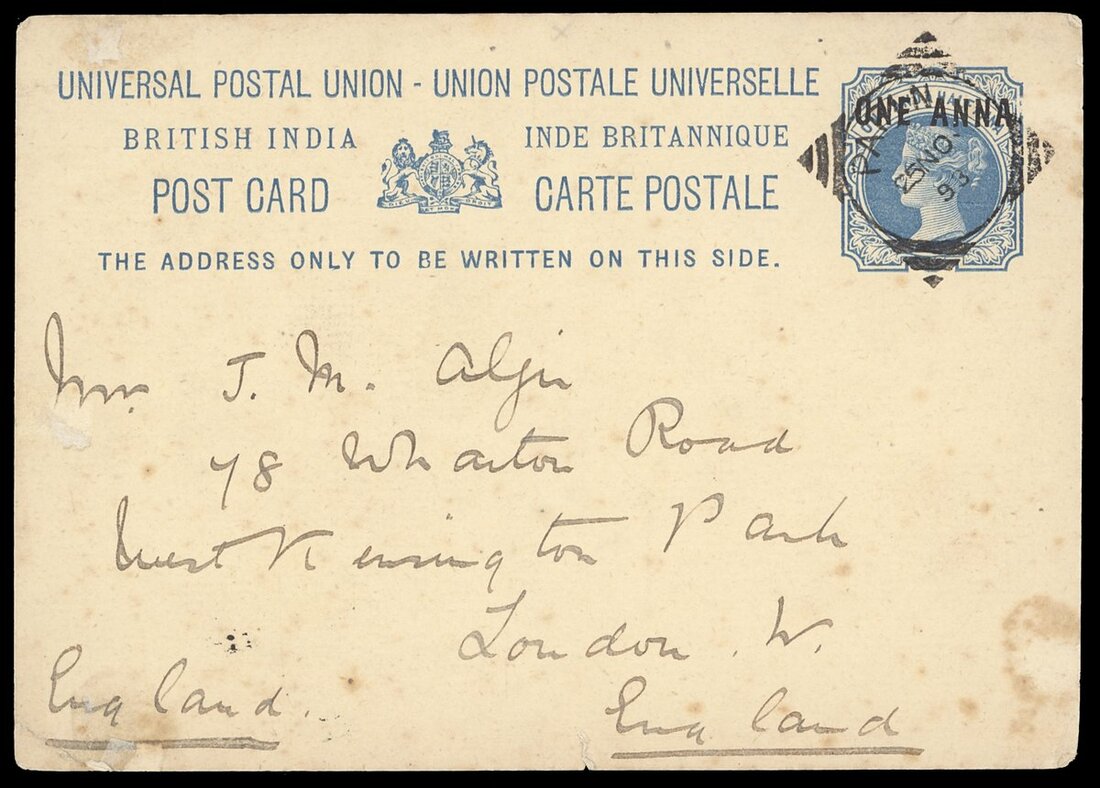 UNIVERSAL POSTAL UNION - UNION POSTALE UNIVERSELLE
BRITISH INDIA INDE BRITANNIQUE
POST CARD CARTE POSTALE
THE ADDRESS ONLY TO BE WRITTEN ON THIS SIDE.
ONE ANNA
25 NO
93
J. M. Alger
78 Wharton Road
West Kensington Park
London. W.
England.
England